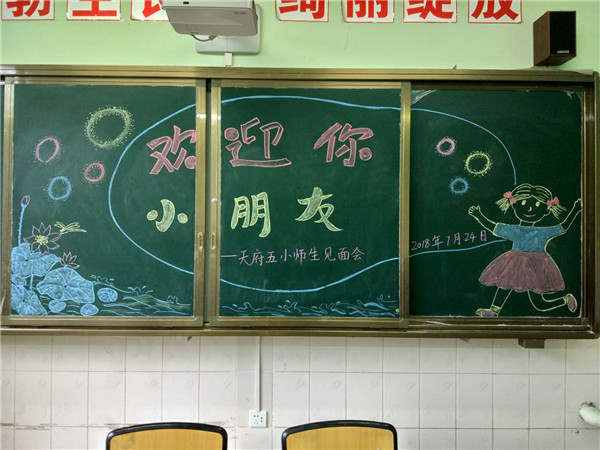 勃生
绚丽绽放
欢迎你
小朋友
—天府五小师生见面会
2018年7月24日